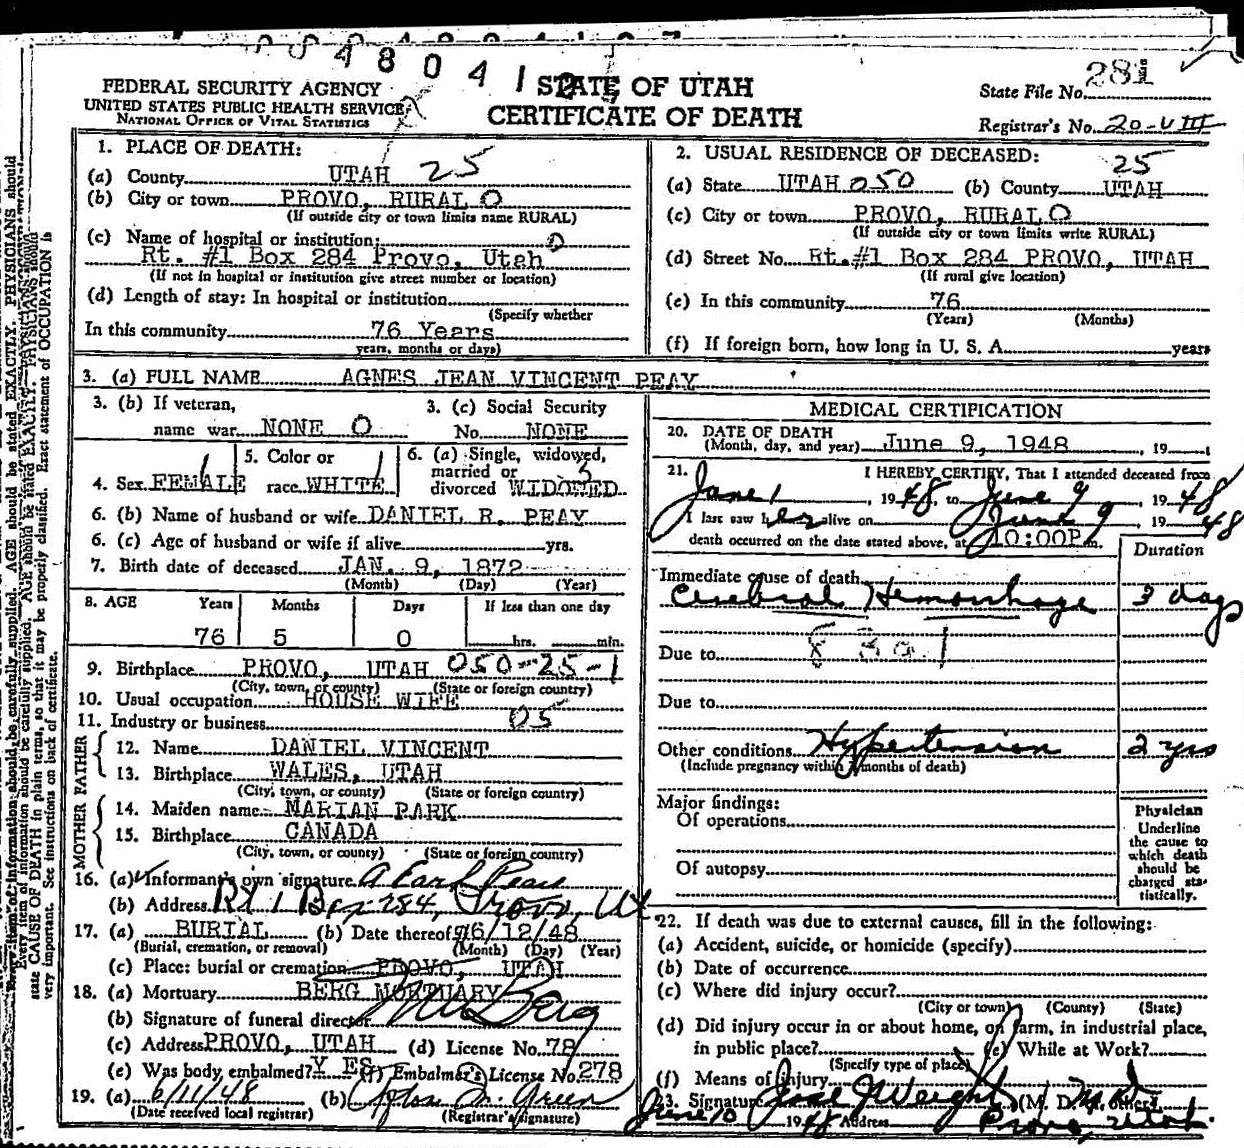 48041
FEDERAL SECURITY AGENCY
UNITED STATES PUBLIC HEALTH SERVICE
NATIONAL OFFICE OF VITAL STATISTICS
STATE OF UTAH
CERTIFICATE OF DEATH
State File No. 281
Registrar's No. 20-VIII
1. PLACE OF DEATH:
(a) County UTAH 25
(b) City or town PROVO, RURAL O
(If outside city or town limits name RURAL)
(c) Name of hospital or institution: O
Rt. #1 Box 284 Provo, Utah
(If not in hospital or institution give street number or location)
(d) Length of stay: In hospital or institution
(Specify whether
In this community 76 Years
years, months or days)
2. USUAL RESIDENCE OF DECEASED:
25
(a) State UTAH 050 (b) County UTAH
(c) City or town PROVO, RURAL O
(If outside city or town limits write RURAL)
(d) Street No. Rt.#1 Box 284 PROVO, UTAH
(If rural give location)
(e) In this community 76
(Years) (Months)
(f) If foreign born, how long in U. S. A. years
3. (a) FULL NAME AGNES JEAN VINCENT PEAY
3. (b) If veteran,
name war NONE O
3. (c) Social Security
No. NONE
4. Sex FEMALE
5. Color or
race WHITE
6. (a) Single, widowed,
married or
divorced WIDOWED
6. (b) Name of husband or wife DANIEL R. PEAY
6. (c) Age of husband or wife if alive yrs.
7. Birth date of deceased JAN. 9, 1872
(Month) (Day) (Year)
8. AGE Years Months Days If less than one day
76 5 0 hrs. min.
9. Birthplace PROVO, UTAH 050-25-1
(City, town, or county) (State or foreign country)
10. Usual occupation HOUSE WIFE
11. Industry or business 05
FATHER
12. Name DANIEL VINCENT
13. Birthplace WALES, UTAH
(City, town, or county) (State or foreign country)
MOTHER
14. Maiden name MARIAN PARK
15. Birthplace CANADA
(City, town, or county) (State or foreign country)
16. (a) Informant's own signature A Earl Peay
(b) Address Rt 1 Box 284, Provo, Ut
17. (a) BURIAL (b) Date thereof 6/12/48
(Burial, cremation, or removal) (Month) (Day) (Year)
(c) Place: burial or cremation PROVO, UTAH
18. (a) Mortuary BERG MORTUARY
(b) Signature of funeral director Berg
(c) Address PROVO, UTAH (d) License No. 78
(e) Was body embalmed? YES (f) Embalmer's License No. 278
19. (a) 6/11/48 (b) Green
(Date received local registrar) (Registrar's signature)
MEDICAL CERTIFICATION
20. DATE OF DEATH
(Month, day, and year) June 9, 1948, 19
21. I HEREBY CERTIFY, That I attended deceased from
June 1, 1948, to June 9, 1948
I last saw her alive on June 9, 1948
death occurred on the date stated above, at 10:00P m.
Duration
Immediate cause of death
Cerebral Hemorrhage 3 days
Due to
Due to
Other conditions Hypertension 2 yrs
(Include pregnancy within 3 months of death)
Major findings:
Of operations
Of autopsy
Physician
Underline
the cause to
which death
should be
charged sta-
tistically.
22. If death was due to external causes, fill in the following:
(a) Accident, suicide, or homicide (specify)
(b) Date of occurrence
(c) Where did injury occur?
(City or town) (County) (State)
(d) Did injury occur in or about home, on farm, in industrial place,
in public place? (e) While at Work?
(Specify type of place)
(f) Means of Injury
23. Signature J Weight (M. D. or other)
June 10 1948 Address Provo, Utah